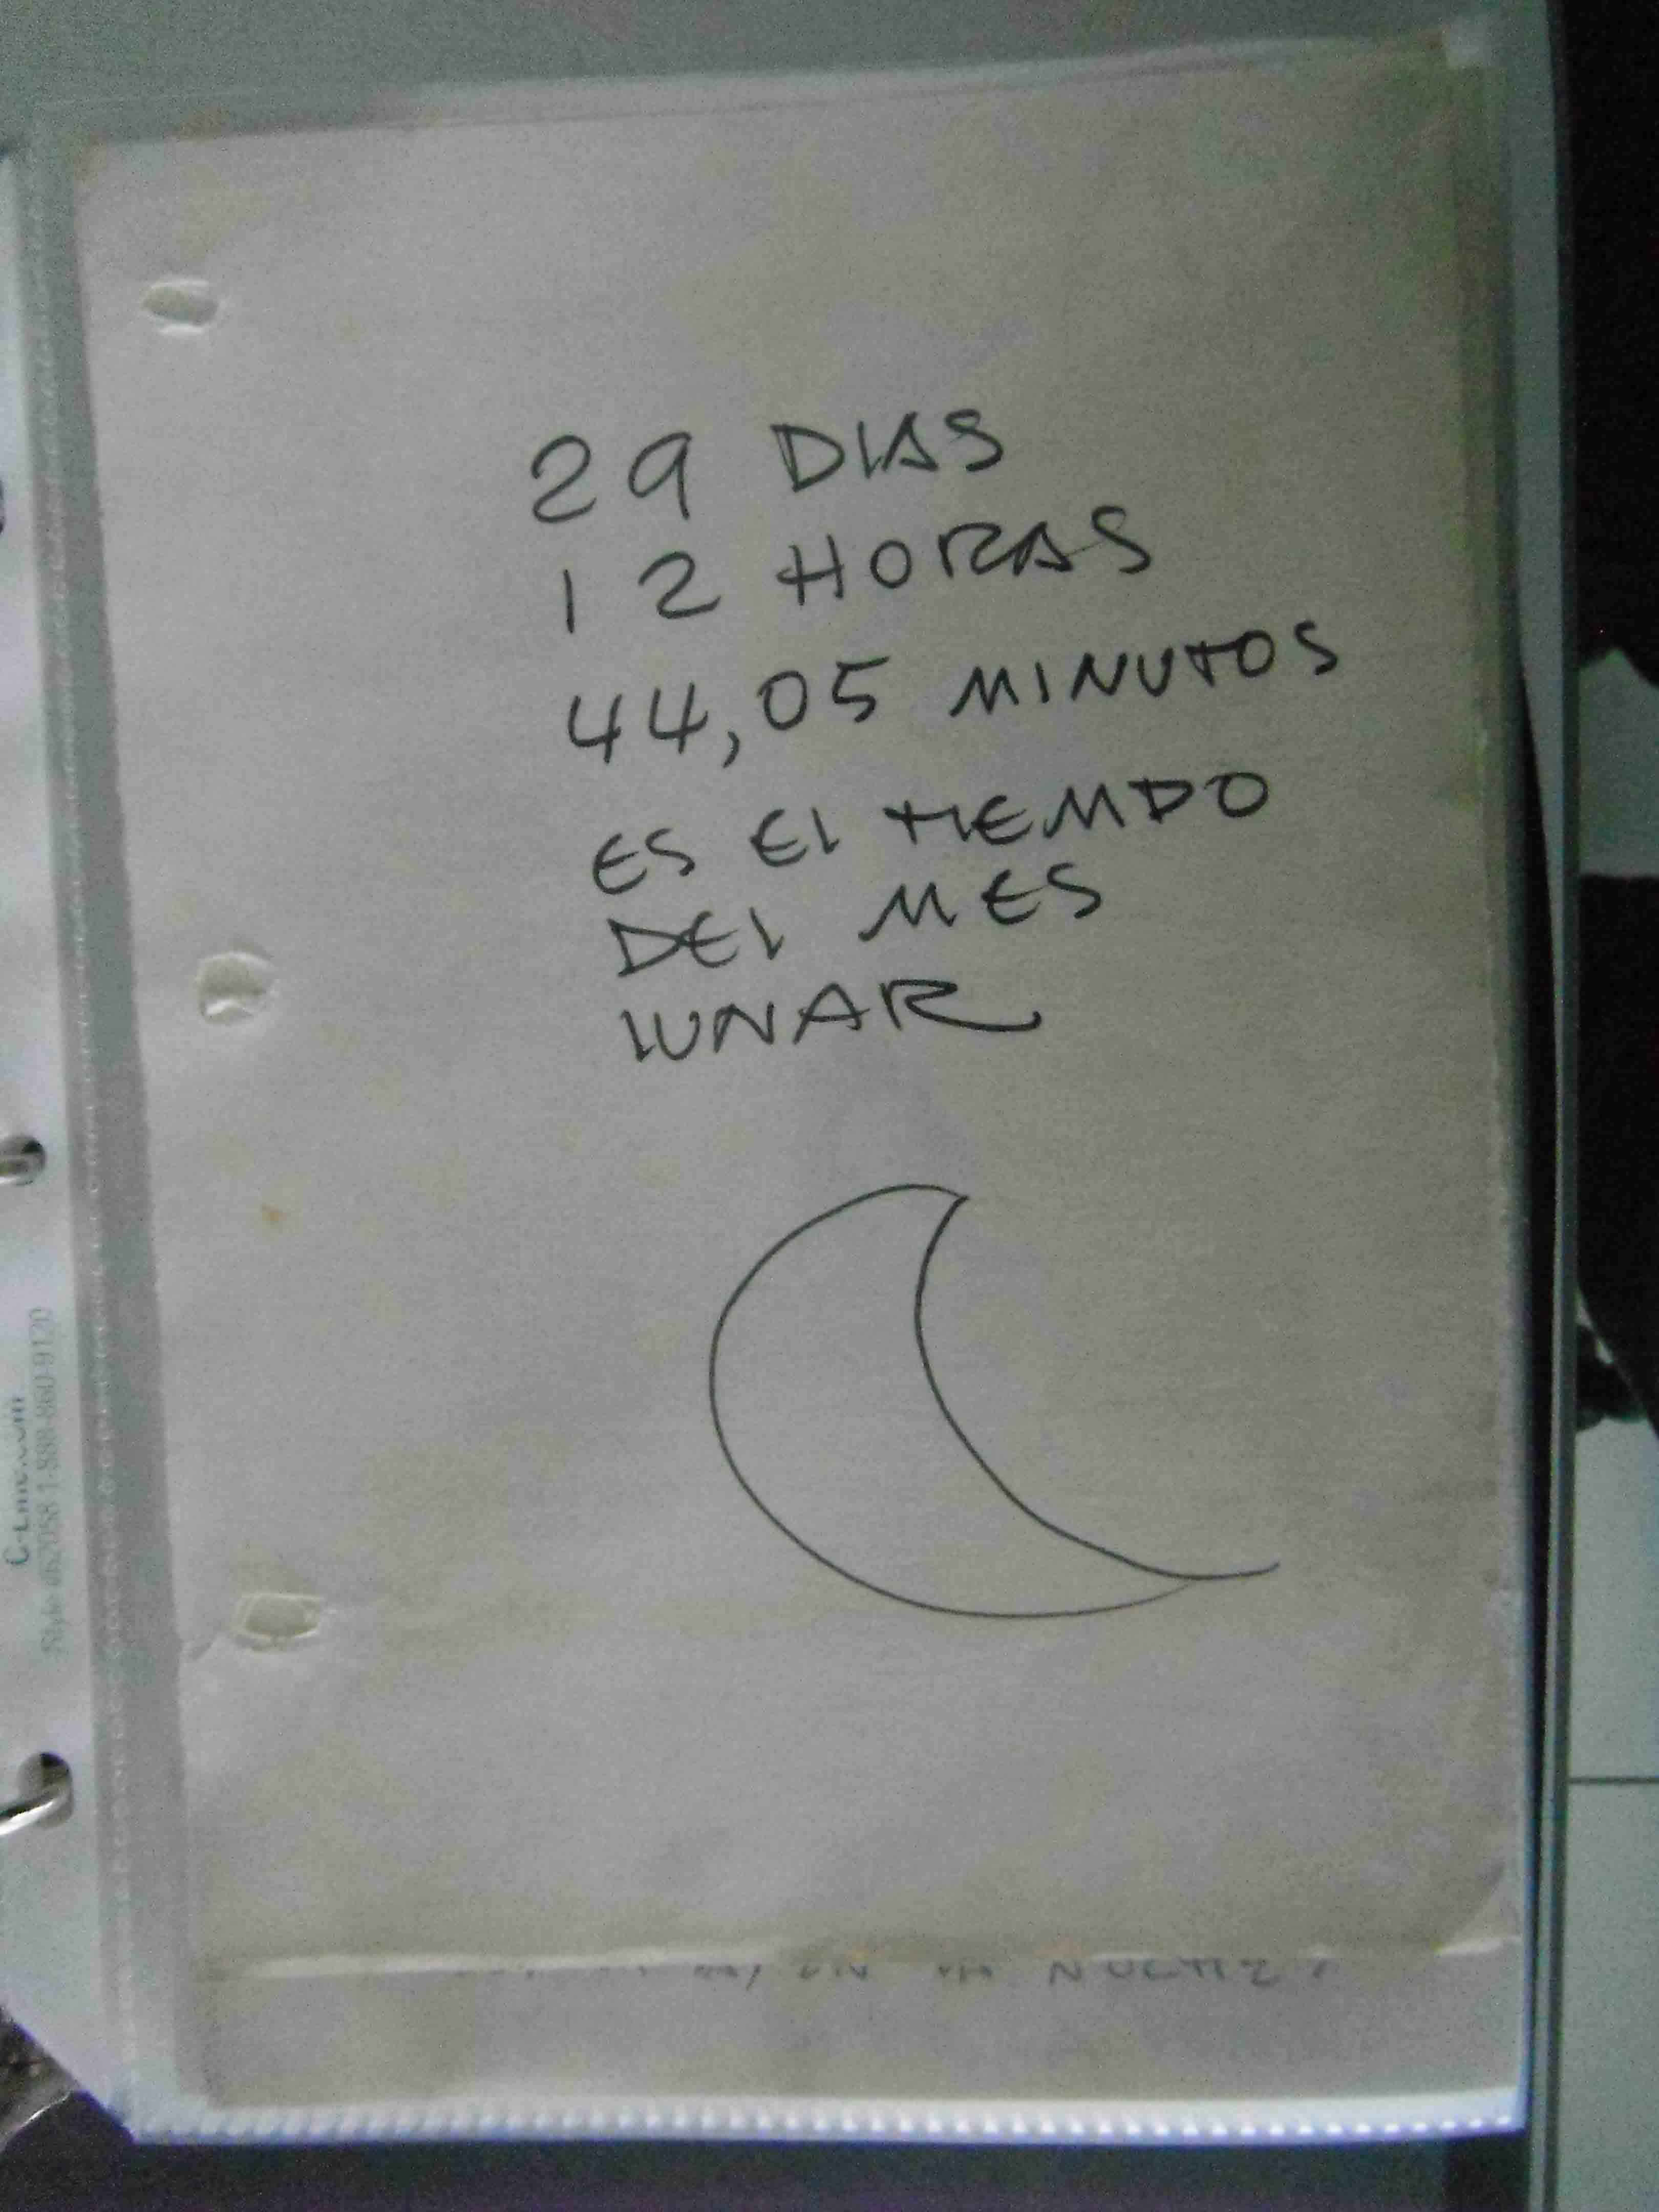 29 DIAS
12 HORAS
44,05 MINUTOS
ES El TIEMPO
DEl MES
lUNAR
C-Line.com
Style #62058 1-888-860-9120